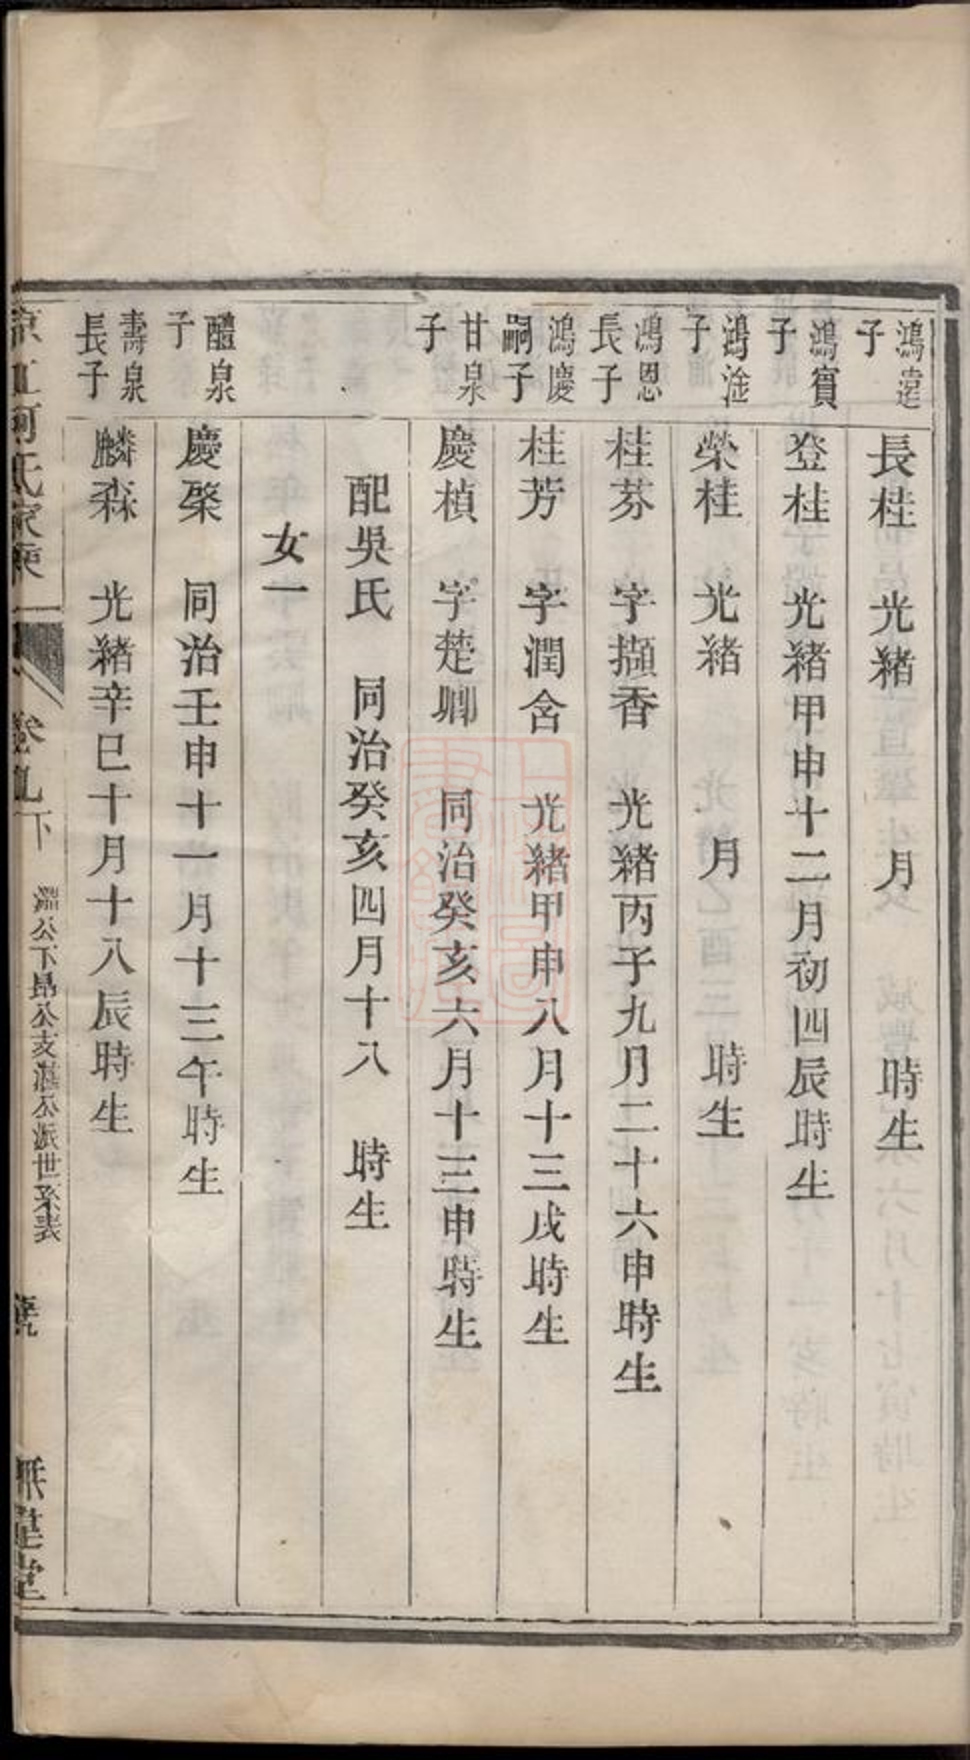 鴻達子
長桂 光緒 月 時生
鴻賓子
登桂 光緒甲申十二月初四辰時生
鴻淦子
榮桂 光緒 月 時生
鴻恩長子
桂芬 字擷香 光緒丙子九月二十六申時生
鴻慶嗣子
桂芳 字潤含 光緒甲申八月十三戌時生
甘泉子
慶楨 字楚卿 同治癸亥六月十三申時生
配吳氏 同治癸亥四月十八 時生
女一
醴泉子
慶棨 同治壬申十一月十三午時生
壽泉長子
麟森 光緒辛巳十月十八辰時生
氏家乘 卷九下 公下昂公支湛公派世系表